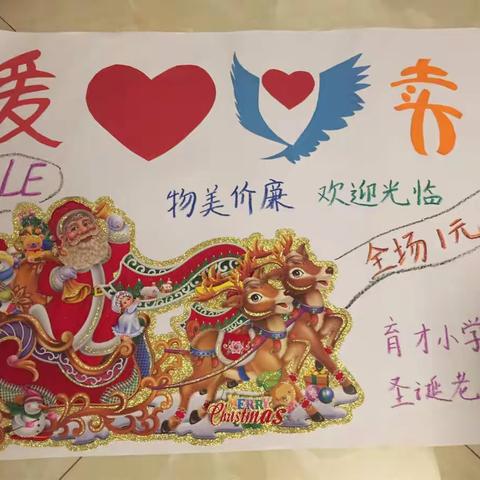 爱 卖
LE
物美价廉 欢迎光临
全场1元
育才小学
圣诞老
MERRY
Christmas